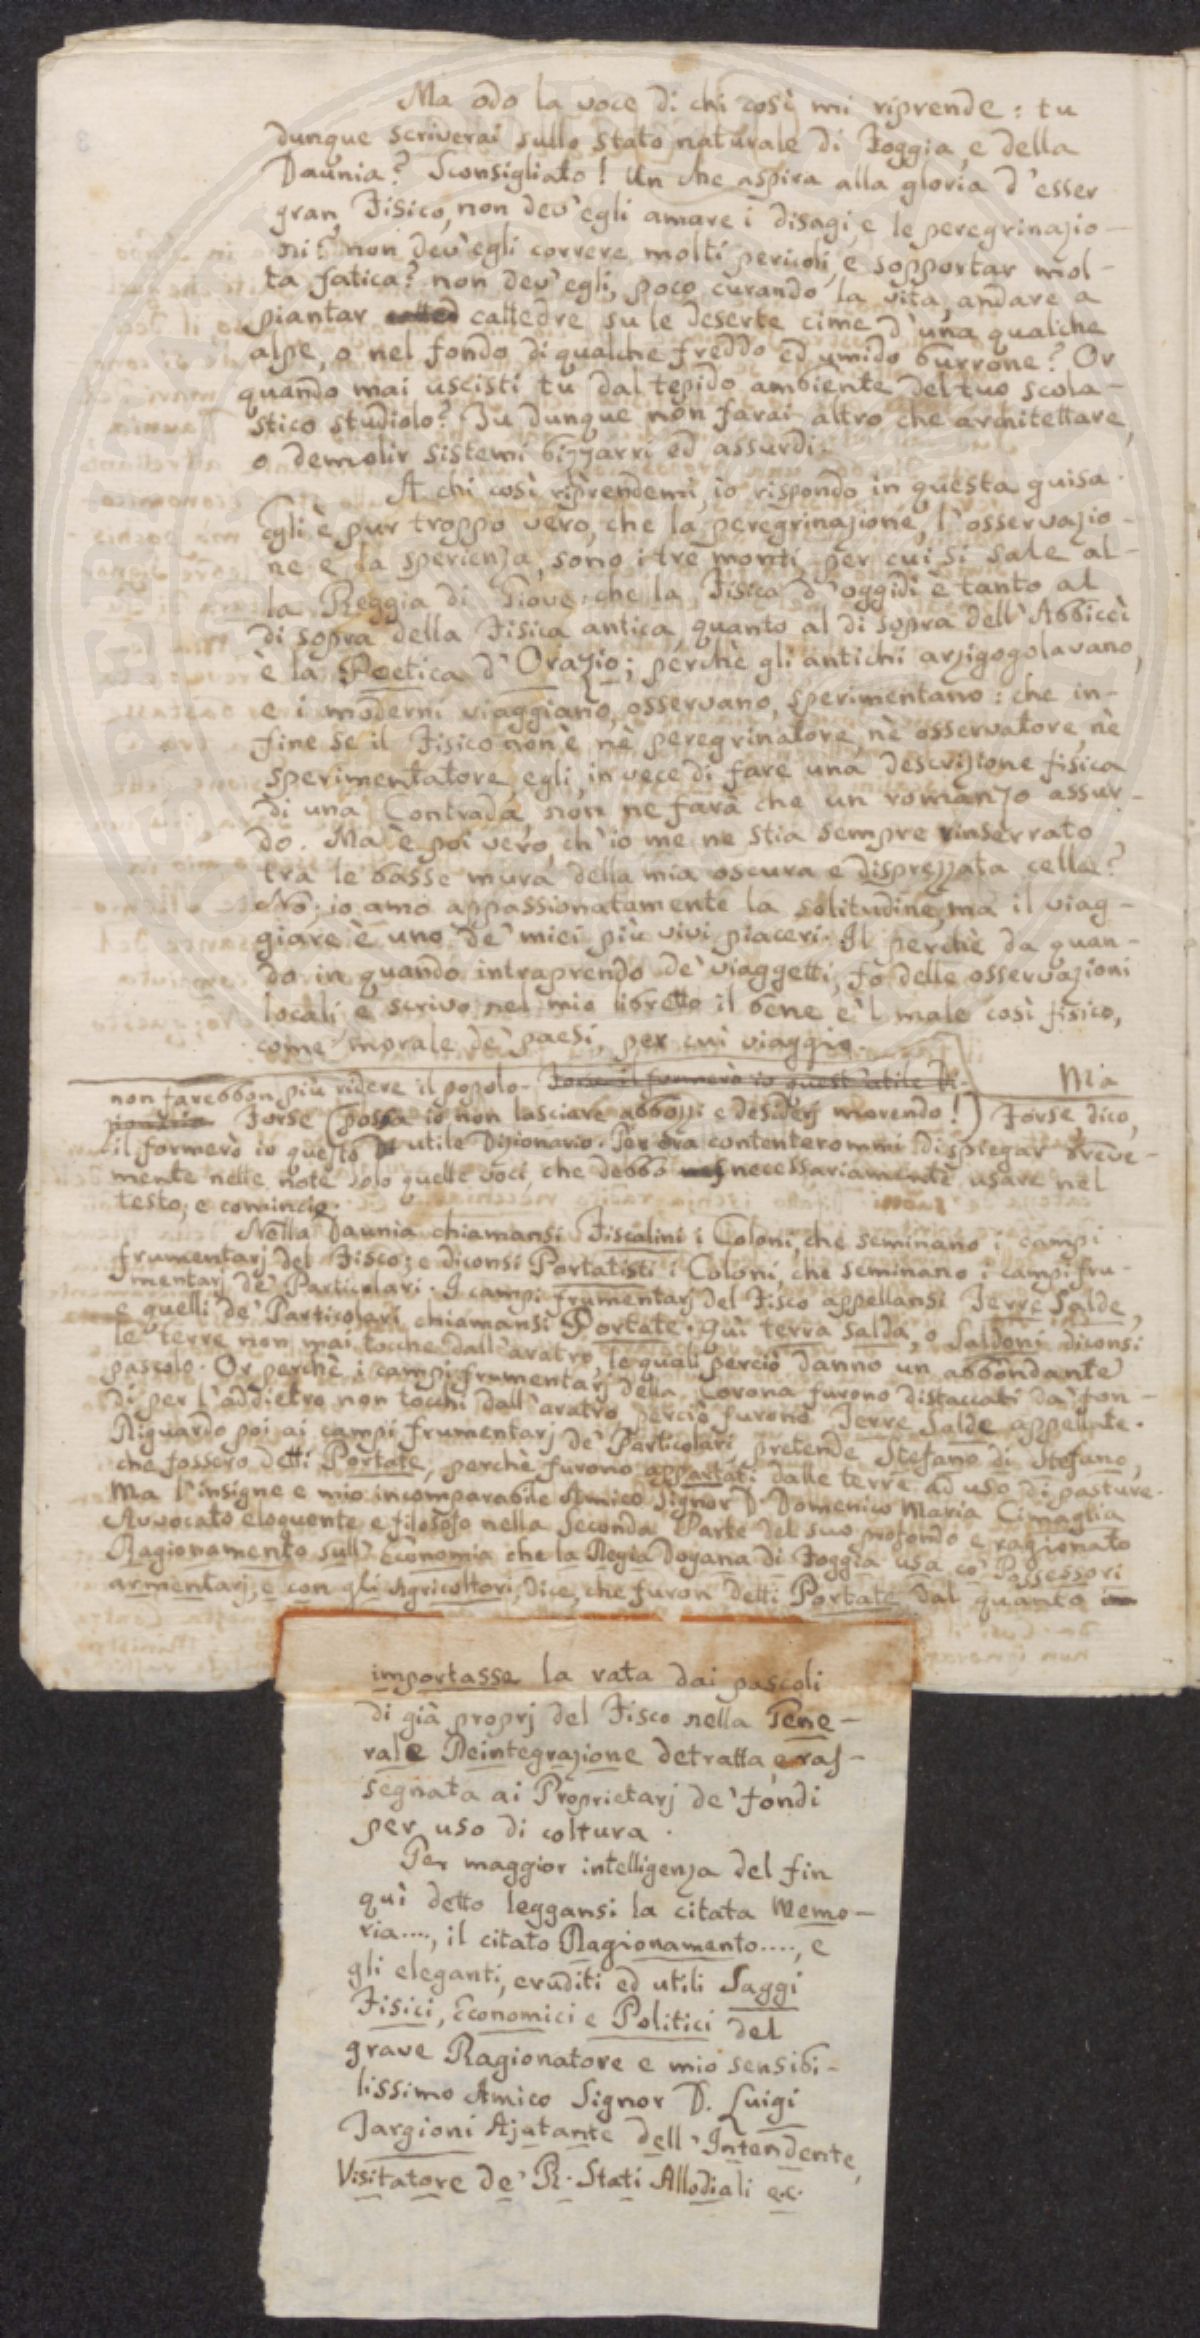 Ma odo la voce di chi così mi riprende: tu
dunque scriverai sullo stato naturale di Foggia, e della
Daunia? Sconsigliato! Un che aspira alla gloria d'esser
gran Fisico, non dev'egli amare i disagi, e le peregrinazio-
ni? non dev'egli correre molti pericoli, e sopportar mol-
ta fatica? non dev'egli, poco curando la vita, andare a
piantar cattedre su le deserte cime d'una qualche
alpe, o nel fondo di qualche freddo ed umido burrone? Or
quando mai uscisti tu dal tepido ambiente del tuo scola-
stico studiolo? Tu dunque non farai altro che architettare,
o demolir sistemi bizzarri ed assurdi.
A chi così riprendemi, io rispondo in questa guisa.
Egli è pur troppo vero, che la peregrinazione, l'osservazio-
ne e la sperienza, sono i tre monti, per cui si sale al-
la Reggia di Giove: che la Fisica d'oggidì è tanto al
di sopra della Fisica antica, quanto al di sopra dell'Abbiccì
è la Poetica d'Orazio; perchè gli antichi arzigogolavano,
e i moderni viaggiano, osservano, sperimentano: che in-
fine se il Fisico non è nè peregrinatore, nè osservatore, nè
sperimentatore, egli, in vece di fare una descrizione fisica
di una Contrada, non ne farà che un romanzo assur-
do. Ma è poi vero, ch'io me ne stia sempre rinserrato
tra le basse mura della mia oscura e disprezzata cella?
Nò: io amo appassionatamente la solitudine, ma il viag-
giare è uno de' miei più vivi piaceri. Il perchè da quan-
do in quando intraprendo de' viaggetti, fo delle osservazioni
locali e scrivo nel mio libretto il bene e 'l male così fisico,
come morale de' paesi, per cui viaggio.
Ma
non farebbon più ridere il popolo. Forse il formerò io quest'utile Di-
zionario Forse (possa io non lasciare abbozzi e desiderj morendo!) Forse dico,
il formerò io questo utile Dizionario. Per ora contenterommi di spiegar breve-
mente nelle note solo quelle voci, che debbo necessariamente usare nel
testo; e comincio.
Nella Daunia chiamansi Fiscalini i Coloni, che seminano i campi
frumentarj del Fisco; e diconsi Portatisti i Coloni, che seminano i campi fru-
mentarj de' Particolari. I campi frumentarj del Fisco appellansi Terre Salde,
e quelli de' Particolari chiamansi Portate. Quì terra salda, o Saldoni diconsi
le terre non mai tocche dall'aratro, le quali perciò danno un abbondante
pascolo. Or perchè i campi frumentarj della Corona furono distaccati da' fon-
di per l'addietro non tocchi dall'aratro, perciò furono Terre Salde appellate.
Riguardo poi ai campi frumentarj de' Particolari, pretende Stefano di Stefano,
che fossero detti Portate, perchè furono appartati dalle terre ad uso di pasture.
Ma l'insigne e mio incomparabile Amico Signor D. Domenico Maria Cimaglia
Avvocato eloquente e filosofo nella Seconda Parte del suo profondo e ragionato
Ragionamento sull'Economia che la Regia Dogana di Foggia usa co' Possessori
armentarj, e con gli Agricoltori, dice, che furon detti Portate dal quanto
importasse la rata dai pascoli
di già proprj del Fisco nella Gene-
rale Reintegrazione detratta, e ras-
segnata ai Proprietarj de' fondi
per uso di coltura.
Per maggior intelligenza del fin
quì detto leggansi la citata Memo-
ria...., il citato Ragionamento...., e
gli eleganti, eruditi ed utili Saggi
Fisici, Economici e Politici del
grave Ragionatore e mio sensibi-
lissimo Amico Signor D. Luigi
Targioni Ajutante dell'Intendente,
Visitatore de' R. Stati Allodiali e.c.